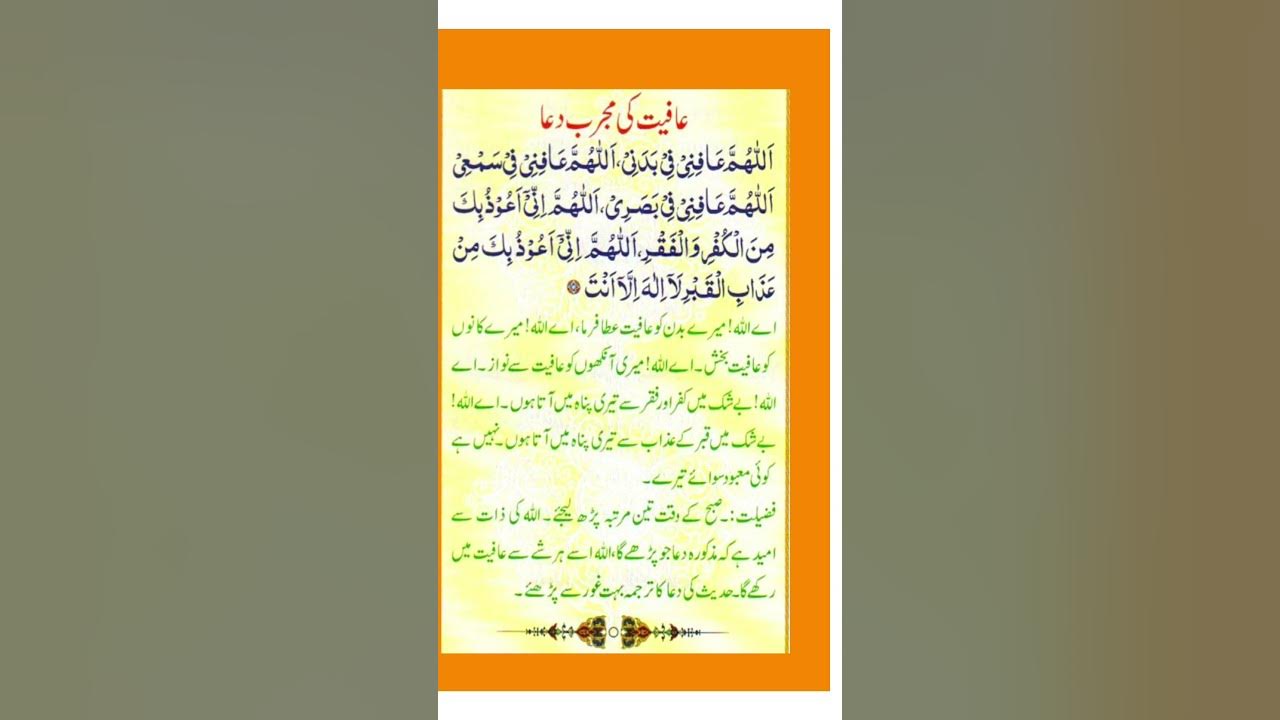 عافیت کی مجرب دعا
اَللّٰهُمَّ عَافِنِیْ فِیْ بَدَنِیْ، اَللّٰهُمَّ عَافِنِیْ فِیْ سَمْعِیْ
اَللّٰهُمَّ عَافِنِیْ فِیْ بَصَرِیْ، اَللّٰهُمَّ اِنِّیْۤ اَعُوْذُ بِكَ
مِنَ الْكُفْرِ وَالْفَقْرِ، اَللّٰهُمَّ اِنِّیْۤ اَعُوْذُ بِكَ مِنْ
عَذَابِ الْقَبْرِ لَاۤ اِلٰهَ اِلَّاۤ اَنْتَ
اے اللہ! میرے بدن کو عافیت عطا فرما، اے اللہ! میرے کانوں
کو عافیت بخش۔ اے اللہ! میری آنکھوں کو عافیت سے نواز۔ اے
اللہ! بے شک میں کفر اور فقر سے تیری پناہ میں آتا ہوں۔ اے اللہ!
بے شک میں قبر کے عذاب سے تیری پناہ میں آتا ہوں۔ نہیں ہے
کوئی معبود سوائے تیرے۔
فضیلت:۔ صبح کے وقت تین مرتبہ پڑھ لیجئے۔ اللہ کی ذات سے
امید ہے کہ مذکورہ دعا جو پڑھے گا، اللہ اسے ہر شے سے عافیت میں
رکھے گا۔ حدیث کی دعا کا ترجمہ بہت غور سے پڑھئے۔